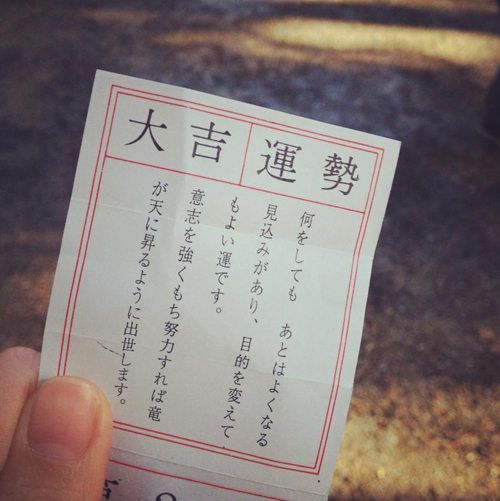 大吉 運勢
何をしても　あとはよくなる
見込みがあり、目的を変えて
もよい運です。
意志を強くもち努力すれば竜
が天に昇るように出世します。